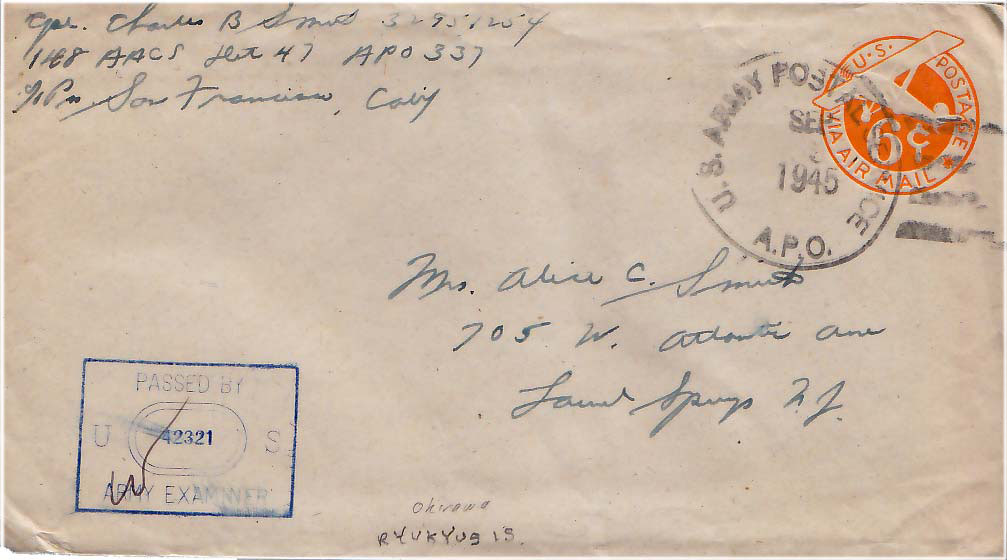 Cpl. Charles B Smith 32951254
148 AACS Det 47 APO 337
c/o Pm San Francisco, Calif
U.S. POSTAGE
6¢
VIA AIR MAIL
U.S. ARMY POSTAL SERVICE
SEP
1945
A.P.O.
Mrs. Alice C. Smith
705 W. Atlantic Ave
Laurel Springs N.J.
PASSED BY
U 42321 S
ARMY EXAMINER
Okinawa
RYUKYUS IS.